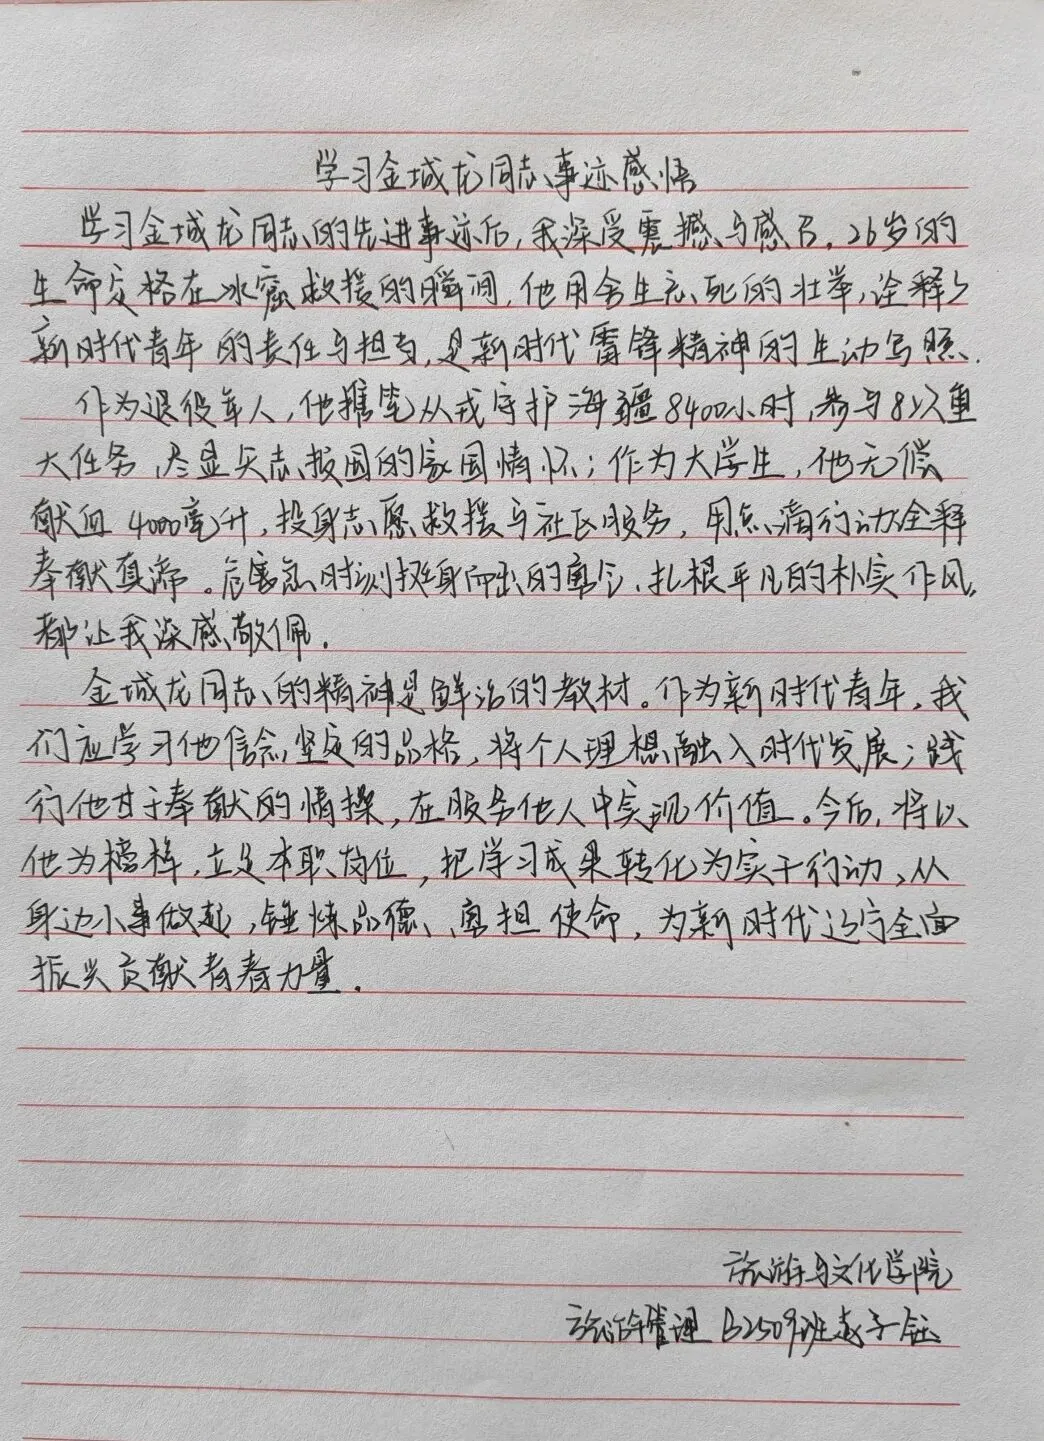 学习金城龙同志事迹感悟
学习金城龙同志的先进事迹后,我深受震撼与感召。26岁的
生命定格在冰窟救援的瞬间,他用舍生忘死的壮举,诠释了
新时代青年的责任与担当,是新时代雷锋精神的生动写照.
作为退役军人,他携笔从戎守护海疆8400小时,参与8次重
大任务,尽显矢志报国的家国情怀;作为大学生,他无偿
献血4000毫升,投身志愿救援与社区服务,用点滴行动诠释
奉献真谛。危急时刻挺身而出的勇气、扎根平凡的朴实作风,
都让我深感敬佩.
金城龙同志的精神是鲜活的教材。作为新时代青年,我
们应学习他信念坚定的品格,将个人理想融入时代发展;践
行他甘于奉献的情操,在服务他人中实现价值。今后,将以
他为榜样,立足本职岗位,把学习成果转化为实干行动、从
身边小事做起,锤炼品德、勇担使命,为新时代辽宁全面
振兴贡献青春力量.
旅游与文化学院
旅游管理B2509班赵子钰